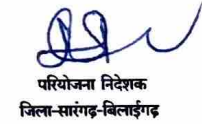 परियोजना निदेशक
जिला-सारंगढ़-बिलाईगढ़